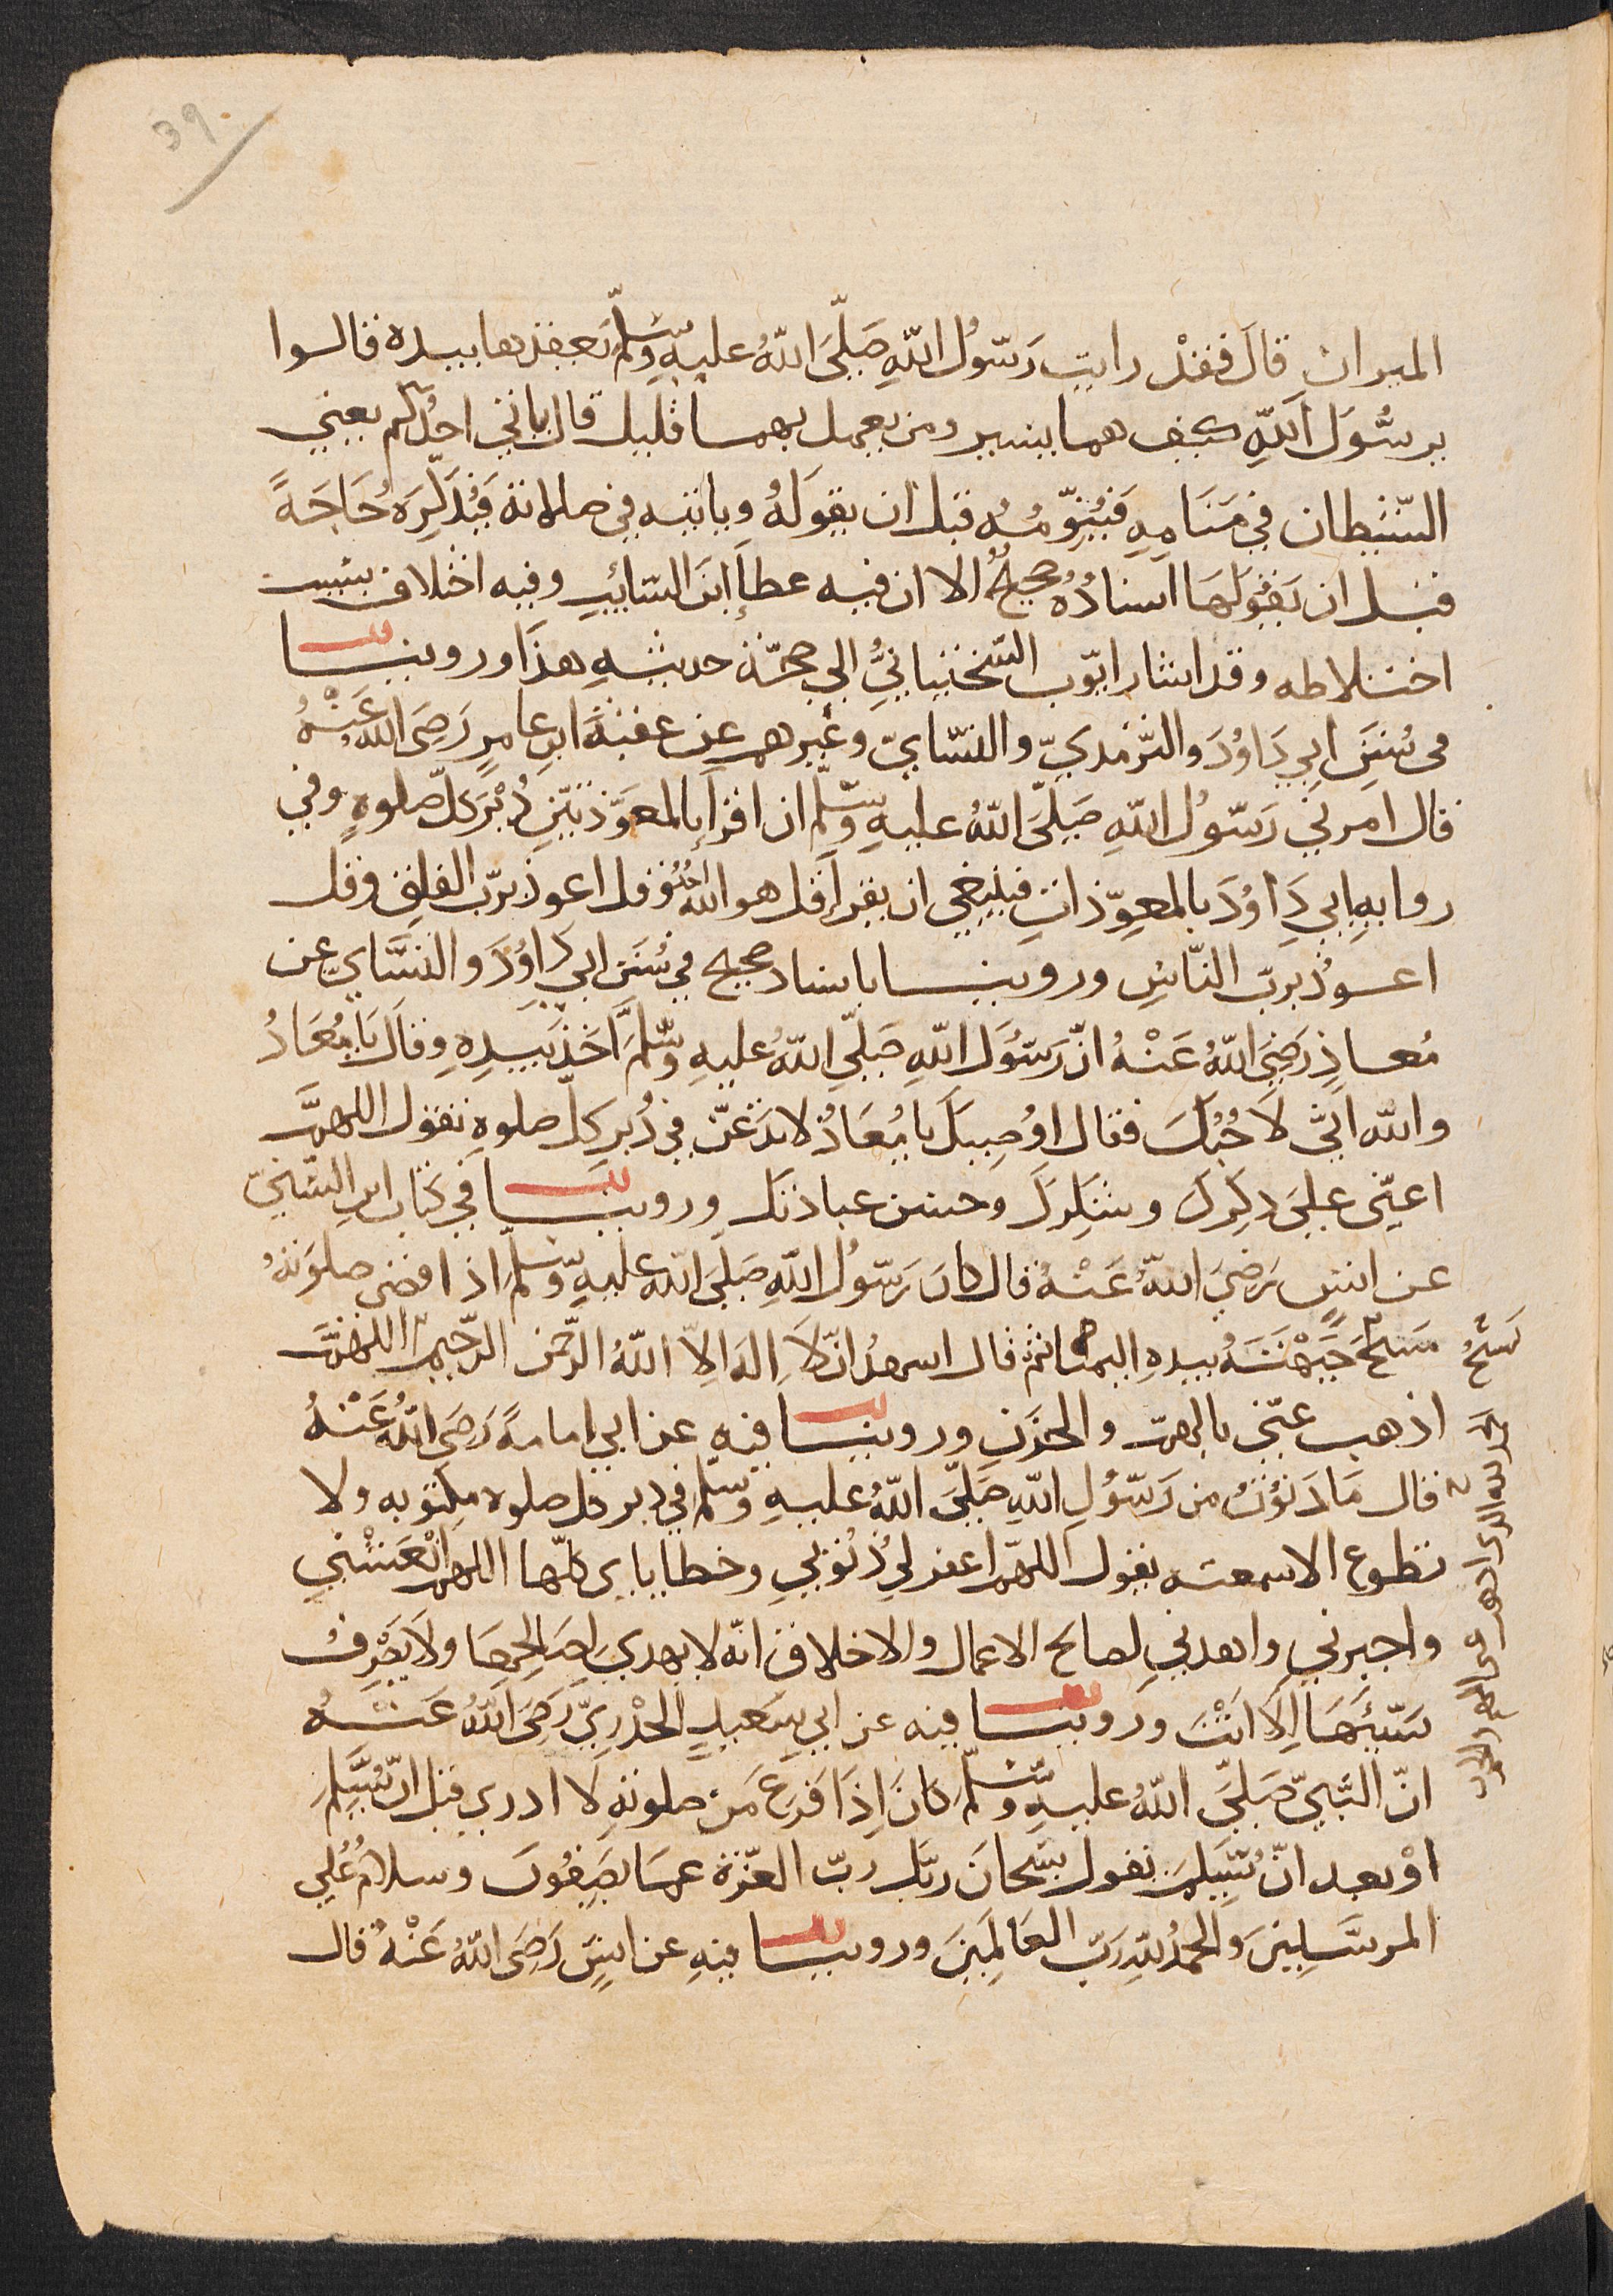 39.
الميزان قالَ فقدْ رايت رَسّولُ اللّهِ صَلّىَ اللّهُ عليهِ وسّلمّ يَعقدها بيده قالوا
يرسُّولَ اللّهِ كيف هما يسير ومن يعمل بهما قليل قال ياتي احدُكم يعني
الشّيطان في مَنَامِهِ فَيُنوِّمُهُ قبل ان يقولَهُ وياتيه في صلاته فَيُذَكِّرَهُ حَاجَةً
قبل ان يَقُولَهَا اسنادُهُ صحيحٌ الا ان فيه عطاءَ ابنَ السّائبِ وفيه اختلاف بسبب
اختلاطه وقد اشار ايّوب السّختيانيُّ الي صحّة حديثهِ هذَا وروينا
في سُننِ ابي دَاوُدَ والتّرمديّ والنسّايّ وغيرهم عن عقبَةَ ابن عامرٍ رَضِىَ اللهُ عَنْهُ
قال امرني رَسّولُ اللّهِ صَلّىَ اللّهُ عليهِ وسّلّم ان اقرأ بالمعَوّذتيْنِ دُبْرَ كلّ صلوةٍ وفي
روايهِ ابي دَاوُدَ بالمعوِّذاتِ فينبغي ان يقرأ قل هو اللهُ احدٌ وقل اعوذ بربّ الفلقِ وقل
اعوذُ بربّ النّاسِ وروينا باسناد صحيح في سُنَن ابي دَاوُدَ والنسَّايّ عن
مُعاذٍ رَضِىَ اللّهُ عَنْهُ انّ رَسّولَ اللّهِ صَلّىَ اللّهُ عليهِ وسّلّمَ اَخَذَ بيَدِهِ وقالَ يَا مُعَادُ
والله انّي لَاحُبُّكَ فقال اوُصِيكَ يا مُعَاذُ لا تدَعَنّ في دُبرِ كلّ صلوةٍ تقول اللهمَّ
اعنّي علىَ دكِركَ وشكِركَ وحسن عبادتك وروينا في كتاب ابنِ السّنيّ
عن انسٍ رَضِىَ اللّهُ عَنْهُ قال كان رَسّولُ اللّهِ صَلّىَ اللّه عليهِ وسّلّمَ اذا قضى صلوَتهُ
مَسَحَ جَبْهَتَهُ بيدهِ اليمنا ثم قال اسهدُ انّ لاَ اِلهَ الاّ اللّهُ الرّحمن الرّحيمُ اللهمَّ
اذهب عنّي بالهمّ والحزَنِ وروينا فيهِ عن ابي امامةَ رَضِىَ اللّهُ عَنْهُ
قال مَا دَنَوْتُ من رَسّولِ اللّهِ صَلّىَ اللّهُ عليهِ وسلّم في دبر كل صلوه مكتوبه ولا
تطوع الا سمعته يقول اللهمّ اغفر لي ذُنُوبي وخطاياي كلّها اللهمّ انْعَشْني
واجبرني واهدني لصالح الاعمال والاخلاق انّه لا يهدي لصَالِحِهَا ولاَ يَصْرِفُ
سَيّئَهَا اِلاَ انْتَ وروينا فيه عن ابي سَعيدٍ الخُدْرِيّ رَضِىَ اللّهُ عَنْهُ
انّ النّبيّ صَلّىَ اللّهُ عليهِ وسّلّم كانَ اِذَا فَرَغَ مَن صلوتهِ لا ادري قبل انْ يُسَلِمَ
اوْ بعد انّ يُسَلِمَ يقول سُبْحانَ ربّك ربّ العزّة عما يصِفُونَ وسلامٌ عَلي
المرسَلِينَ وَالحمدُ للهِ رَبّ العَالَمِينَ وروينا فيهِ عن انسٍ رَضِىَ اللّهُ عَنْهُ قال
الحمد لله الذى اذهب عنى الهم والحزن